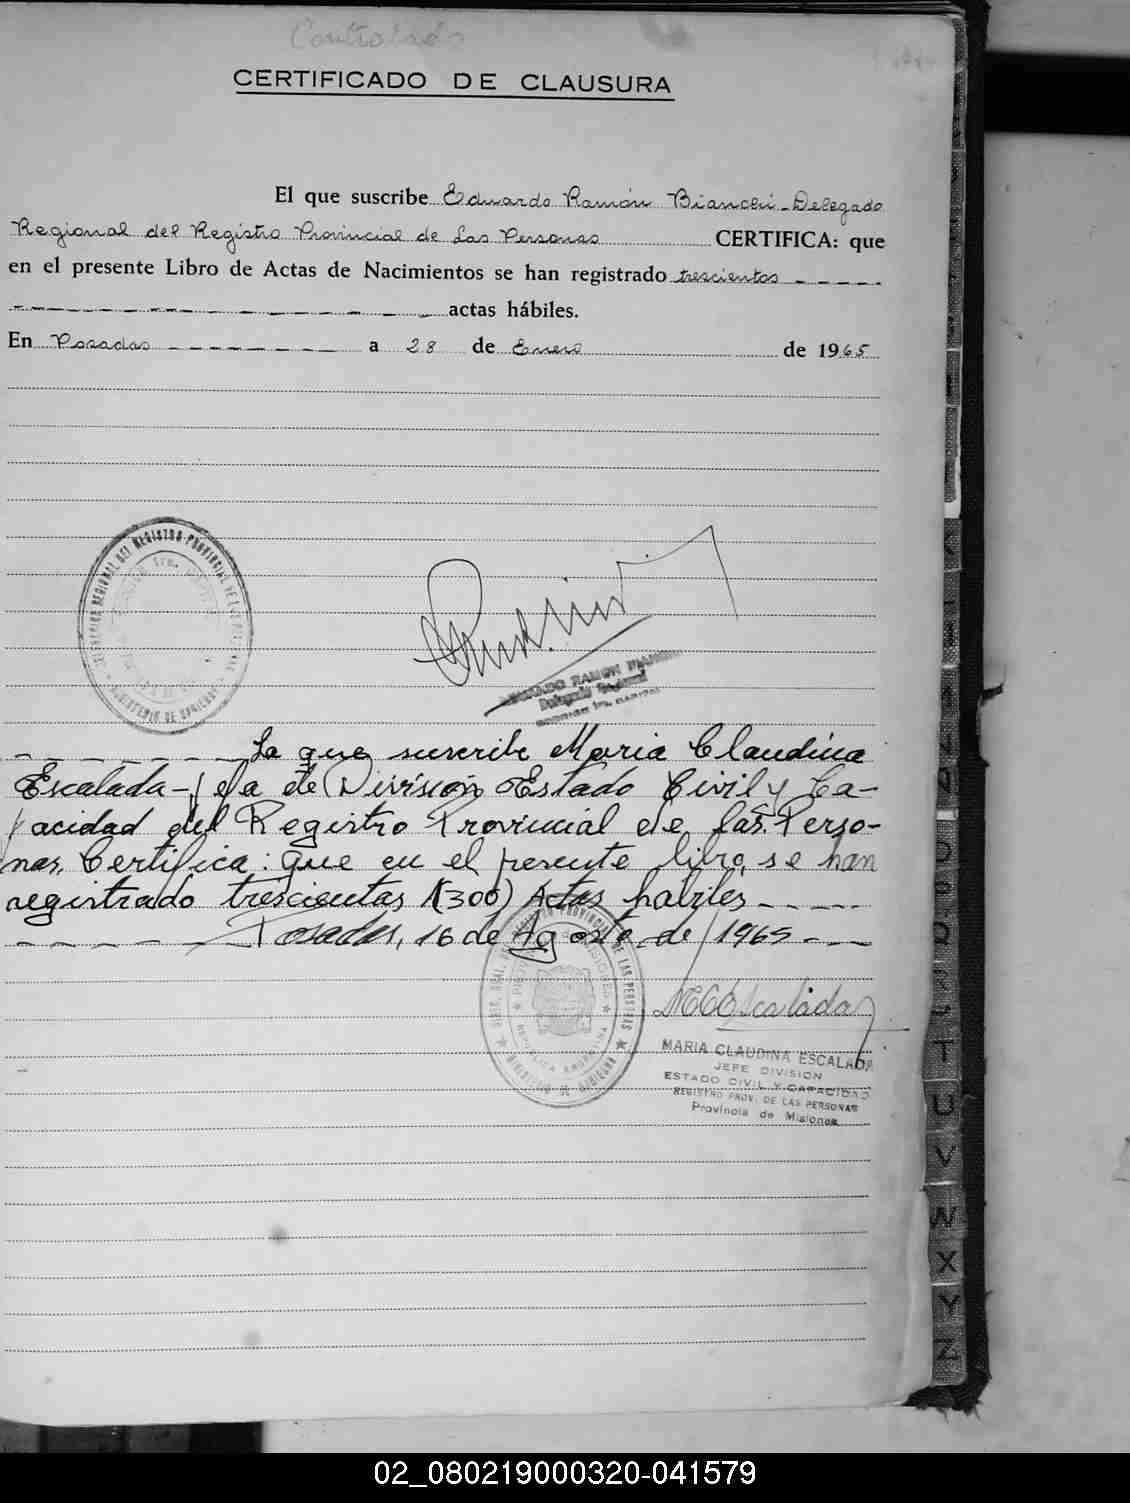 Controlado
CERTIFICADO DE CLAUSURA
El que suscribe Eduardo Ramón Bianchi - Delegado
Regional del Registro Provincial de Las Personas CERTIFICA: que
en el presente Libro de Actas de Nacimientos se han registrado trescientos - - - - -
- - - - - - - - - - - - - actas hábiles.
En Posadas - - - - - - - - a 28 de Enero de 1965
DELEGACION REGIONAL DEL REGISTRO PROVINCIAL DE LAS PERSONAS
MINISTERIO DE GOBIERNO
EDUARDO RAMON BIANCHI
Delegado Regional
La que suscribe Maria Claudina
Escalada - Jefa de División Estado Civil y Ca-
pacidad del Registro Provincial de las Perso-
nas, Certifica: que en el presente libro, se han
registrado trescientas (300) Actas habiles - - - - -
- - - - - - Posadas, 16 de Agosto de 1965 - - -
PROVINCIAL DE LAS PERSONAS
REPUBLICA ARGENTINA
MINISTERIO DE GOBIERNO
MCEscalada
MARIA CLAUDINA ESCALADA
JEFE DIVISION
ESTADO CIVIL Y CAPACIDAD
REGISTRO PROV. DE LAS PERSONAS
Provincia de Misiones
T
U
V
W
X
Y
Z
02_080219000320-041579